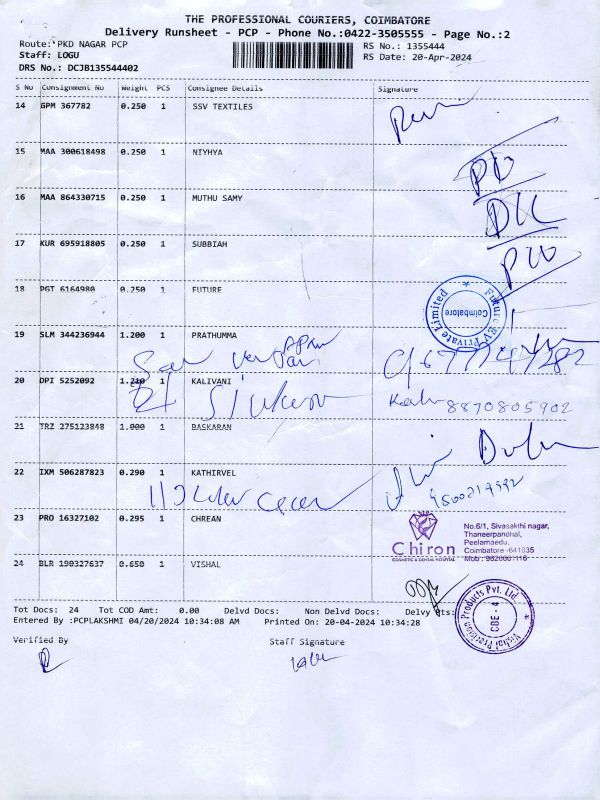 THE PROFESSIONAL COURIERS, COIMBATORE
Delivery Runsheet - PCP - Phone No.:0422-3505555 - Page No.:2
Route: PKD NAGAR PCP
RS No.: 1355444
Staff: LOGU
RS Date: 20-Apr-2024
DRS No.: DCJB135544402
S No Consignment No Weight PCS Consignee Details Signature
14 GPM 367782 0.250 1 SSV TEXTILES
15 MAA 300618498 0.250 1 NIYHYA
16 MAA 864330715 0.250 1 MUTHU SAMY
17 KUR 695918805 0.250 1 SUBBIAH
18 PGT 6164980 0.250 1 FUTURE
Private Limited Coimbatore
19 SLM 344236944 1.200 1 PRATHUMMA
20 DPI 5252092 1.210 1 KALIVANI
8870805902
21 TRZ 275123848 1.000 1 BASKARAN
22 IXM 506287823 0.290 1 KATHIRVEL
23 PRO 16327102 0.295 1 CHREAN
Chiron
COSMETIC & DENTAL HOSPITAL
No.6/1, Sivasakthi nagar,
Thaneerpandhal,
Peelamaedu,
Coimbatore -641035
24 BLR 190327637 0.650 1 VISHAL
Vishal Precision Products Pvt. Ltd. CBE - 4
Tot Docs: 24 Tot COD Amt: 0.00 Delvd Docs: Non Delvd Docs: Delvy Pts:
Entered By :PCPLAKSHMI 04/20/2024 10:34:08 AM Printed On: 20-04-2024 10:34:28
Verified By Staff Signature